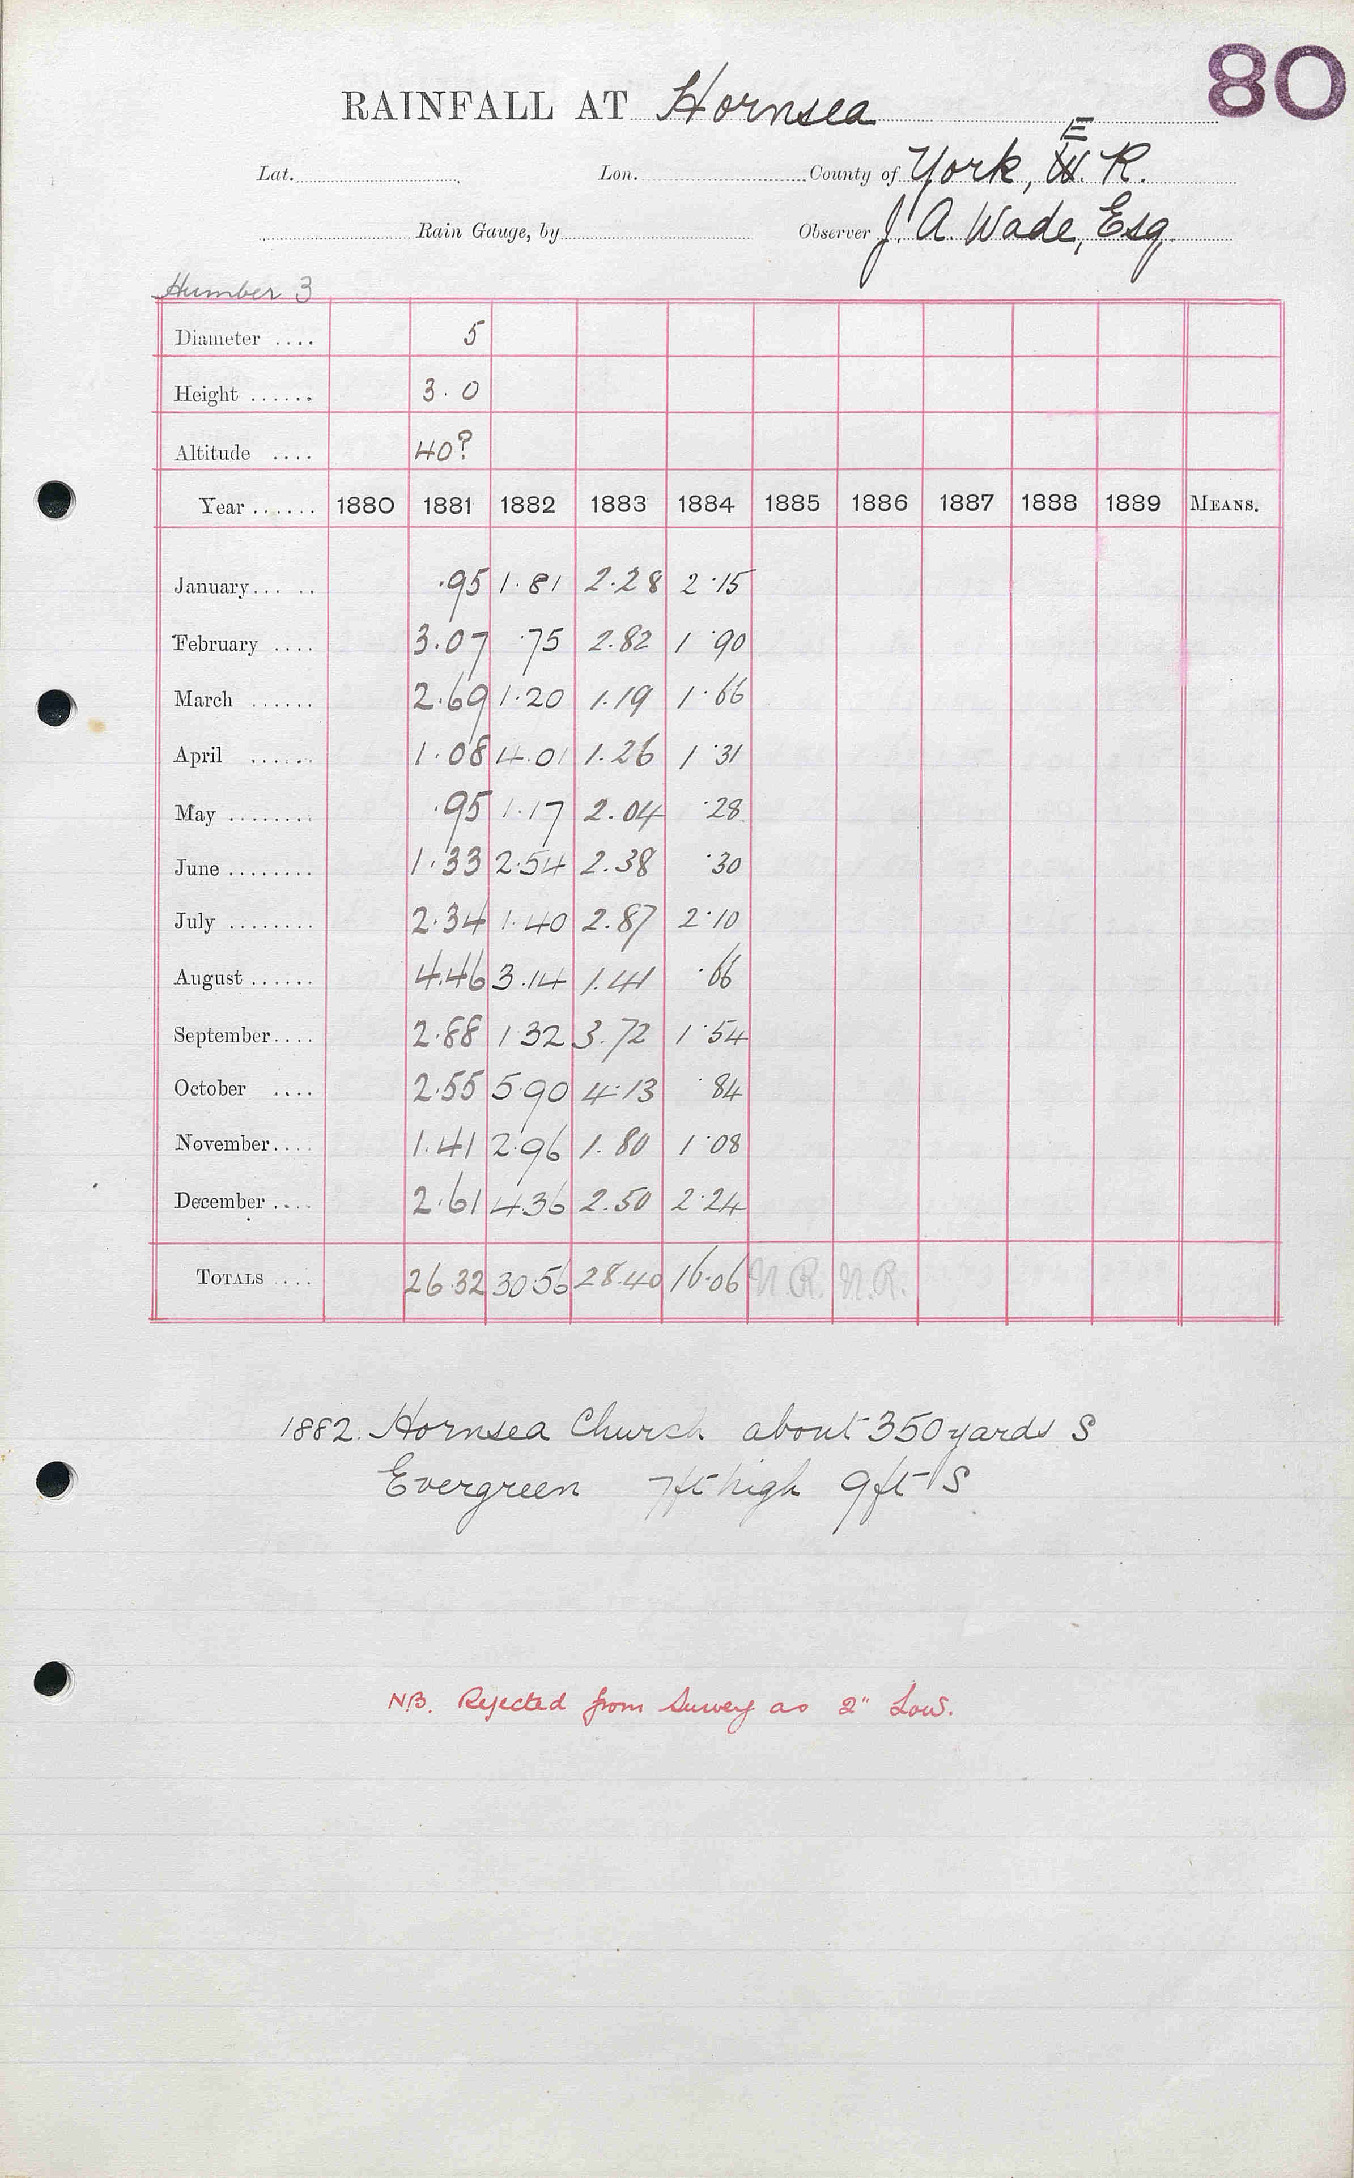 80
RAINFALL AT Hornsea
Lat. Lon. County of York, E. R.
Rain Gauge, by Observer J. A. Wade, Esq.
Humber 3
Diameter .... 5
Height ...... 3.0
Altitude .... 40?
Year ...... 1880 1881 1882 1883 1884 1885 1886 1887 1888 1889 MEANS.
January... .. .95 1.81 2.28 2.15
February .... 3.07 .75 2.82 1.90
March ...... 2.69 1.20 1.19 1.66
April ...... 1.08 4.01 1.26 1.31
May ........ .95 1.17 2.04 .28
June ........ 1.33 2.54 2.38 .30
July ........ 2.34 1.40 2.87 2.10
August ...... 4.46 3.14 1.41 .66
September.... 2.88 1.32 3.72 1.54
October .... 2.55 5.90 4.13 .84
November.... 1.41 2.96 1.80 1.08
December .... 2.61 4.36 2.50 2.24
TOTALS .... 26.32 30.56 28.40 16.06 N.R. N.R.
1882. Hornsea Church about 350 yards S
Evergreen 7ft high 9ft S
N.B. Rejected from Survey as 2" Low.